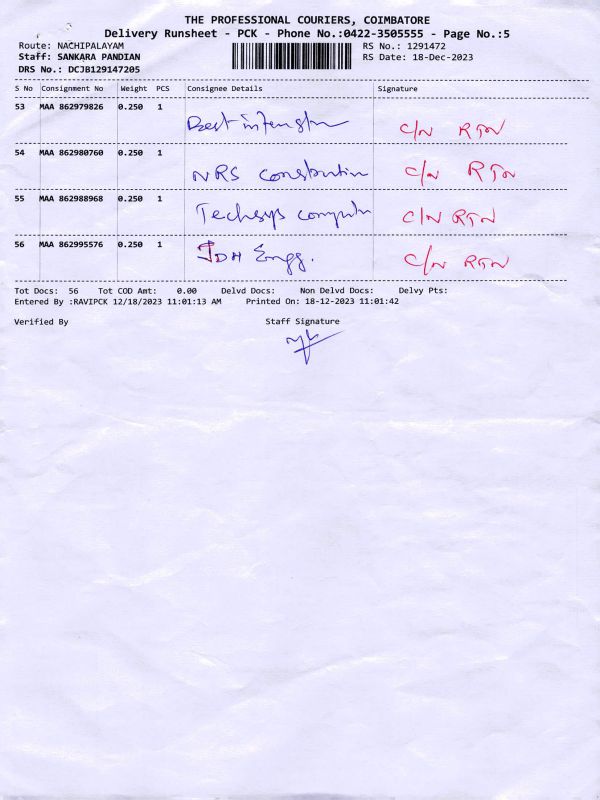 THE PROFESSIONAL COURIERS, COIMBATORE
Delivery Runsheet - PCK - Phone No.:0422-3505555 - Page No.:5
Route: NACHIPALAYAM RS No.: 1291472
Staff: SANKARA PANDIAN RS Date: 18-Dec-2023
DRS No.: DCJB129147205
S No Consignment No Weight PCS Consignee Details Signature
53 MAA 862979826 0.250 1 Best C/N RTN
54 MAA 862980760 0.250 1 NRS C/N RTN
55 MAA 862988968 0.250 1 Techsys C/N RTN
56 MAA 862995576 0.250 1 Engg. C/N RTN
Tot Docs: 56 Tot COD Amt: 0.00 Delvd Docs: Non Delvd Docs: Delvy Pts:
Entered By :RAVIPCK 12/18/2023 11:01:13 AM Printed On: 18-12-2023 11:01:42
Verified By Staff Signature